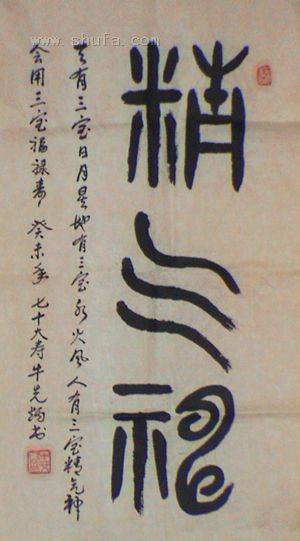 精气神
天有三宝日月星地有三宝水火风人有三宝精气神
会用三宝福禄寿癸未年七十大寿牛先炳书
书法 www.shufa.com